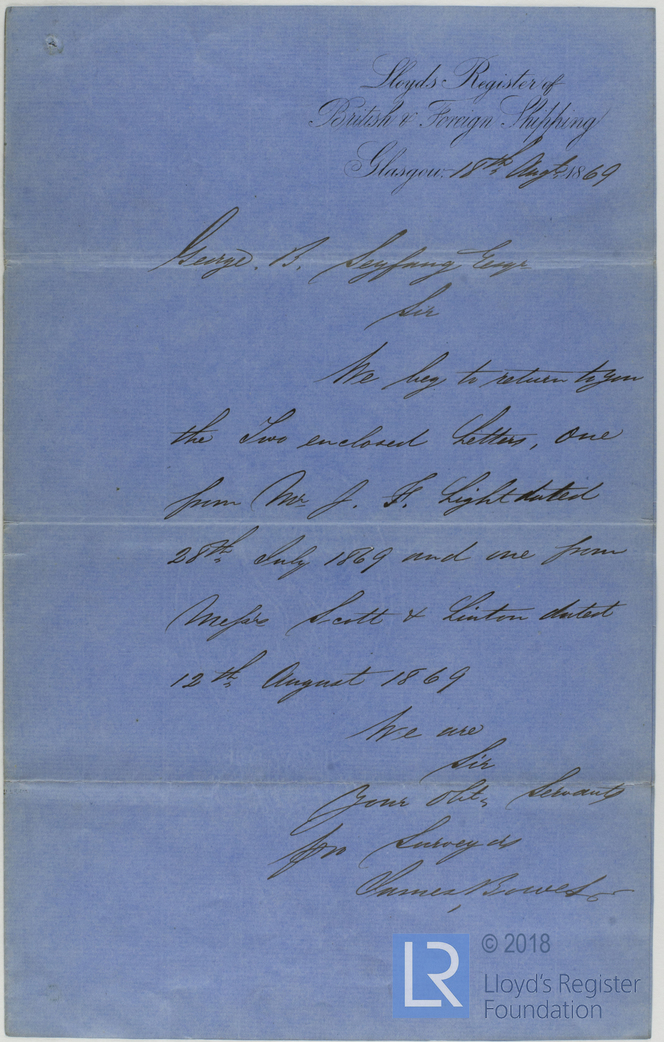 Lloyds Register of
British & Foreign Shipping
Glasgow, 18th Augt. 1869
George. B. Seyfang Esqr
Sir
We beg to return to you
the Two enclosed Letters, One
from Mr J. F. Light dated
28th July 1869 and one from
Messrs Scott & Linton dated
12th August 1869
We are
Sir
Your Obt. Servants
for Surveyors
James Bowes
LR
© 2018
Lloyd's Register
Foundation